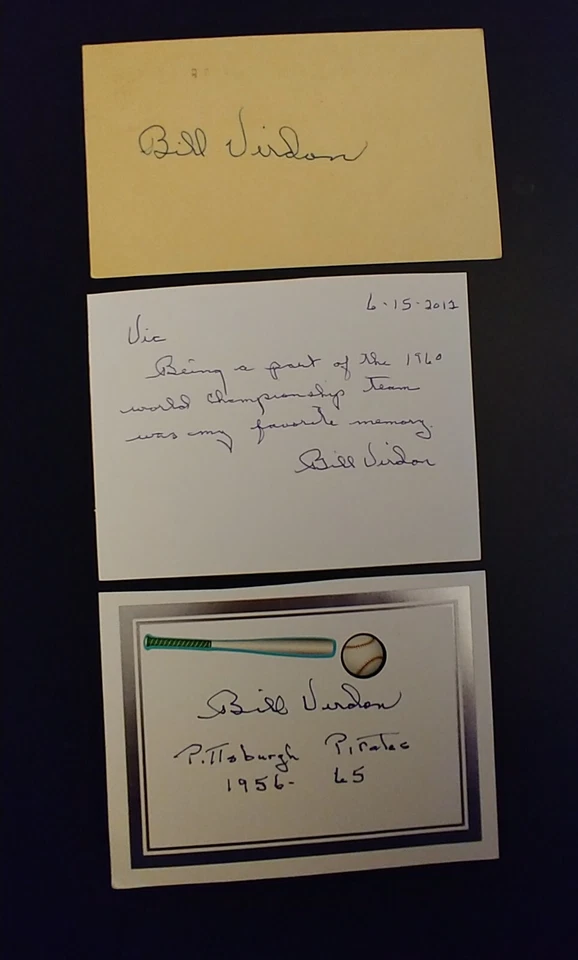 Bill Virdon
6-15-2012
Vic
Being a part of the 1960
world championship team
was my favorite memory.
Bill Virdon
Bill Virdon
Pittsburgh Pirates
1956- 65